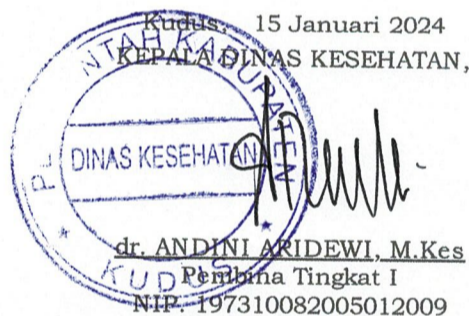 Kudus, 15 Januari 2024
KEPALA DINAS KESEHATAN,
NTAH KABUPATEN
DINAS KESEHATAN
KUDUS
dr. ANDINI ARIDEWI, M.Kes
Pembina Tingkat I
NIP. 197310082005012009